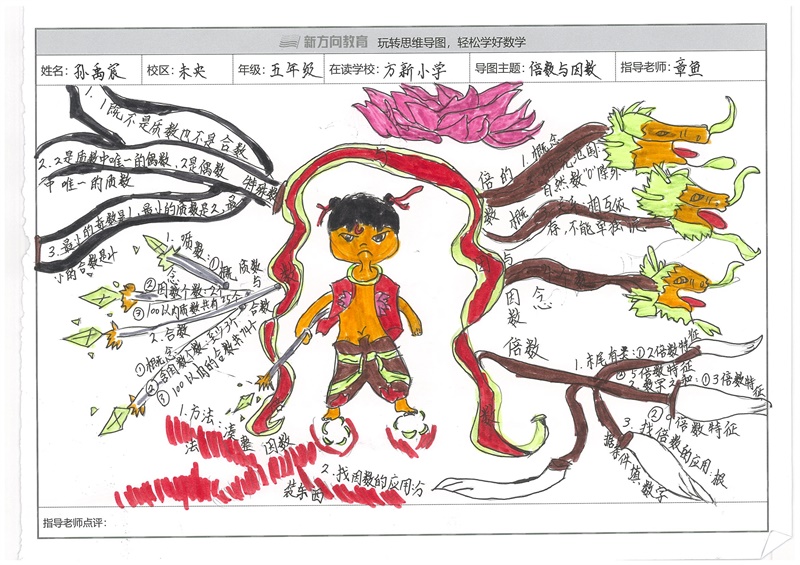 新方向教育 玩转思维导图，轻松学好数学
姓名：孙禹宸 校区：未央 年级：五年级 在读学校：方新小学 导图主题：倍数与因数 指导老师：章鱼
1. 1既不是质数也不是合数
2. 2是质数中唯一的偶数，2是偶数
中唯一的质数
特殊数
3. 最小的奇数是1，最小的质数是2，最
小的合数是4
1. 质数：①概
念
②因数个数：2个
③100以内质数共有25个
质数
与
合数
2. 合数
①概念
②因数个数：至少3个
③100以内的合数共74个
倍数
与
因数
概
念
1. 概念
范围：
自然数"0"除外
相互依
存，不能单独
倍数
1. 末尾有关：①2倍数特征
②5倍数特征
2. 数字之和：①3倍数特征
②9倍数特征
3. 找倍数的应用：根
据条件填数字
1. 方法：凑整
法
因数
2. 找因数的应用：分
装东西
指导老师点评：